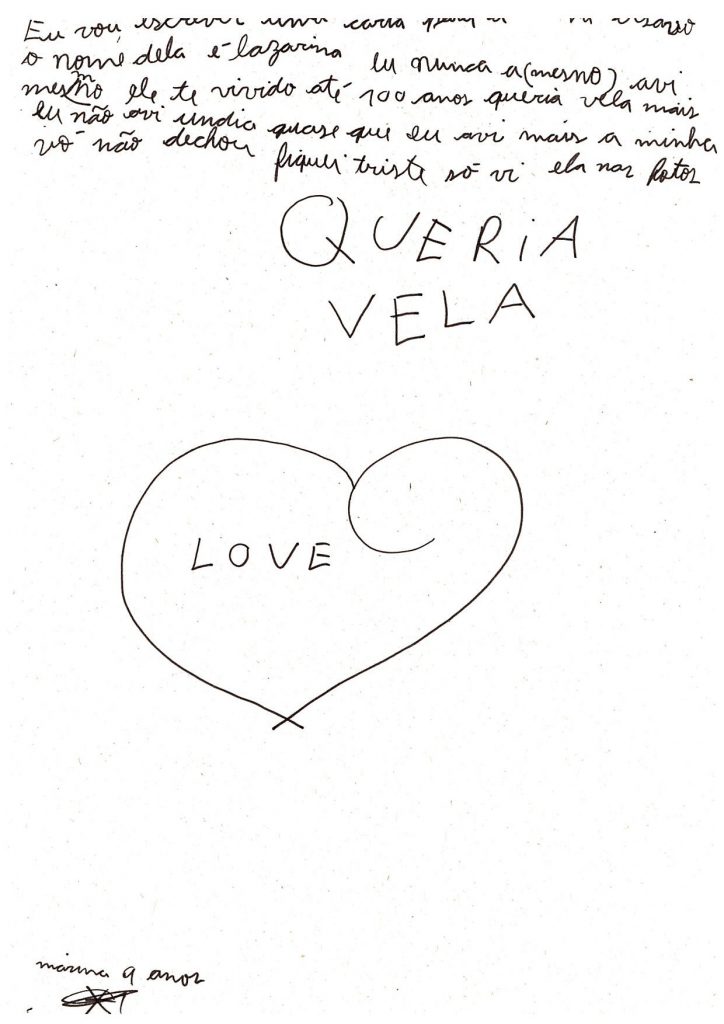 Eu vou escrever uma carta
o nome dela é lazarina eu nunca a(mesno) avi
mesmo ele te vivido até 100 anos queria vela mais
eu não avi undia quase que eu avi mais a minha
vó não dechou fiquei triste só vi ela nas fotos
QUERiA
VELA
LOVE
marina 9 anos